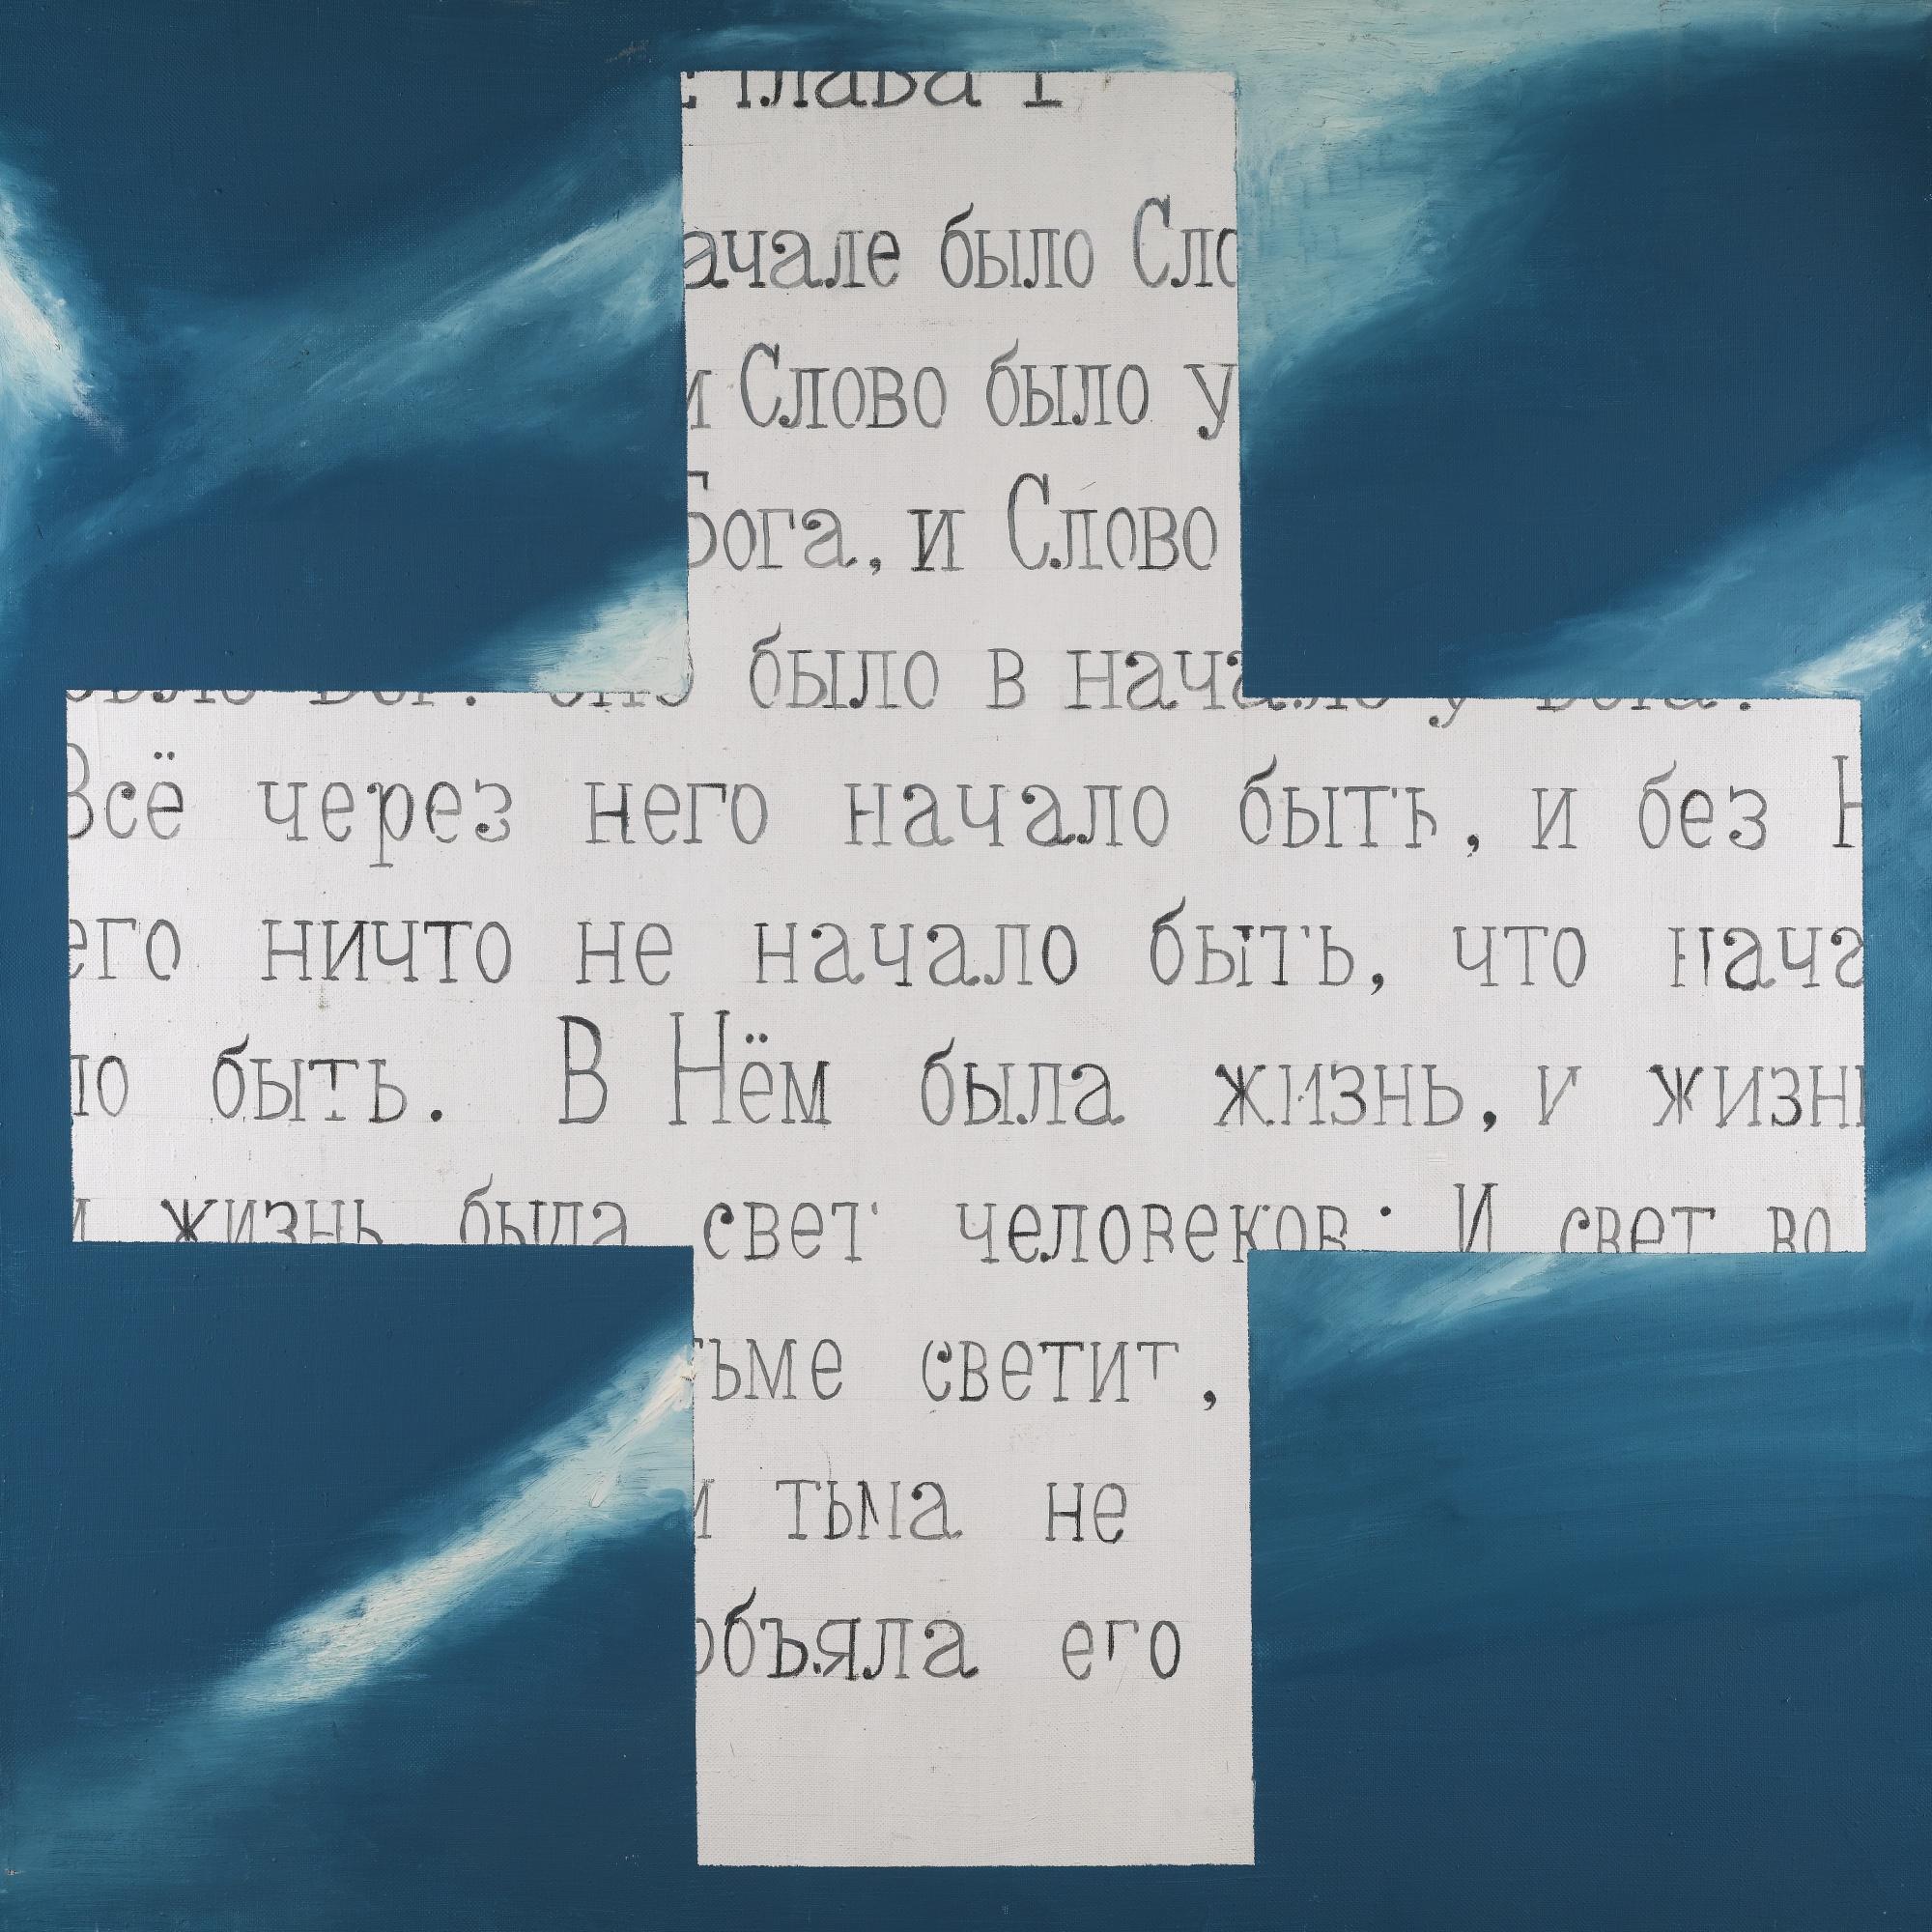 глава 1
ачале было Сло
и Слово было у
Бога, и Слово
было Бог. оно было в начале у Бога.
Всё через него начало быть, и без Н
его ничто не начало быть, что нача
ло быть. В Нём была жизнь, и жизн
и жизнь была свет человеков: И свет во
тьме светит,
и тьма не
объяла его